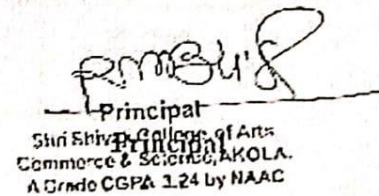 Principal
Principal
Shri Shivaji College of Arts
Commerce & Science, AKOLA.
A Grade CGPA 3.24 by NAAC